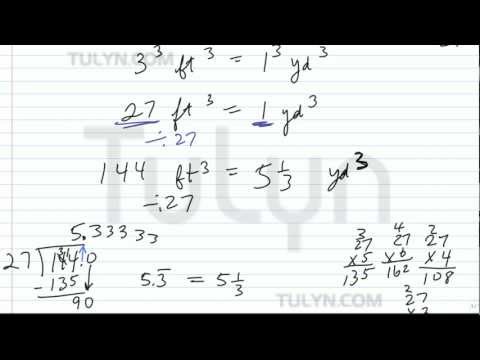 TULYN.COM
3³ ft³ = 1³ yd³
27 ft³ = 1 yd³
÷27
144 ft³ = 5 1/3 yd³
÷27
Tulyn
5.33333
27 144.0
-135
90
5.3̅ = 5 1/3
3
27
x5
135
4
27
x6
162
2
27
x4
108
2
27
x3
TULYN.COM